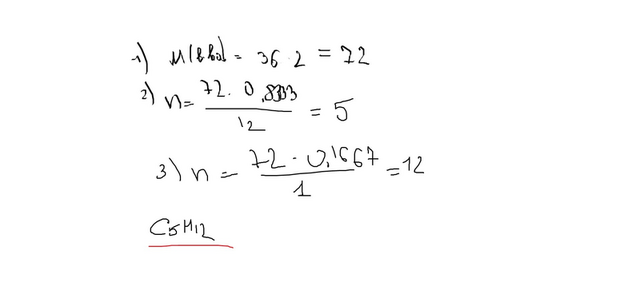 1) M(в-ва) = 36·2 = 72
2) n = 72·0,8333 / 12 = 5
3) n = 72·0,1667 / 1 = 12
C5H12